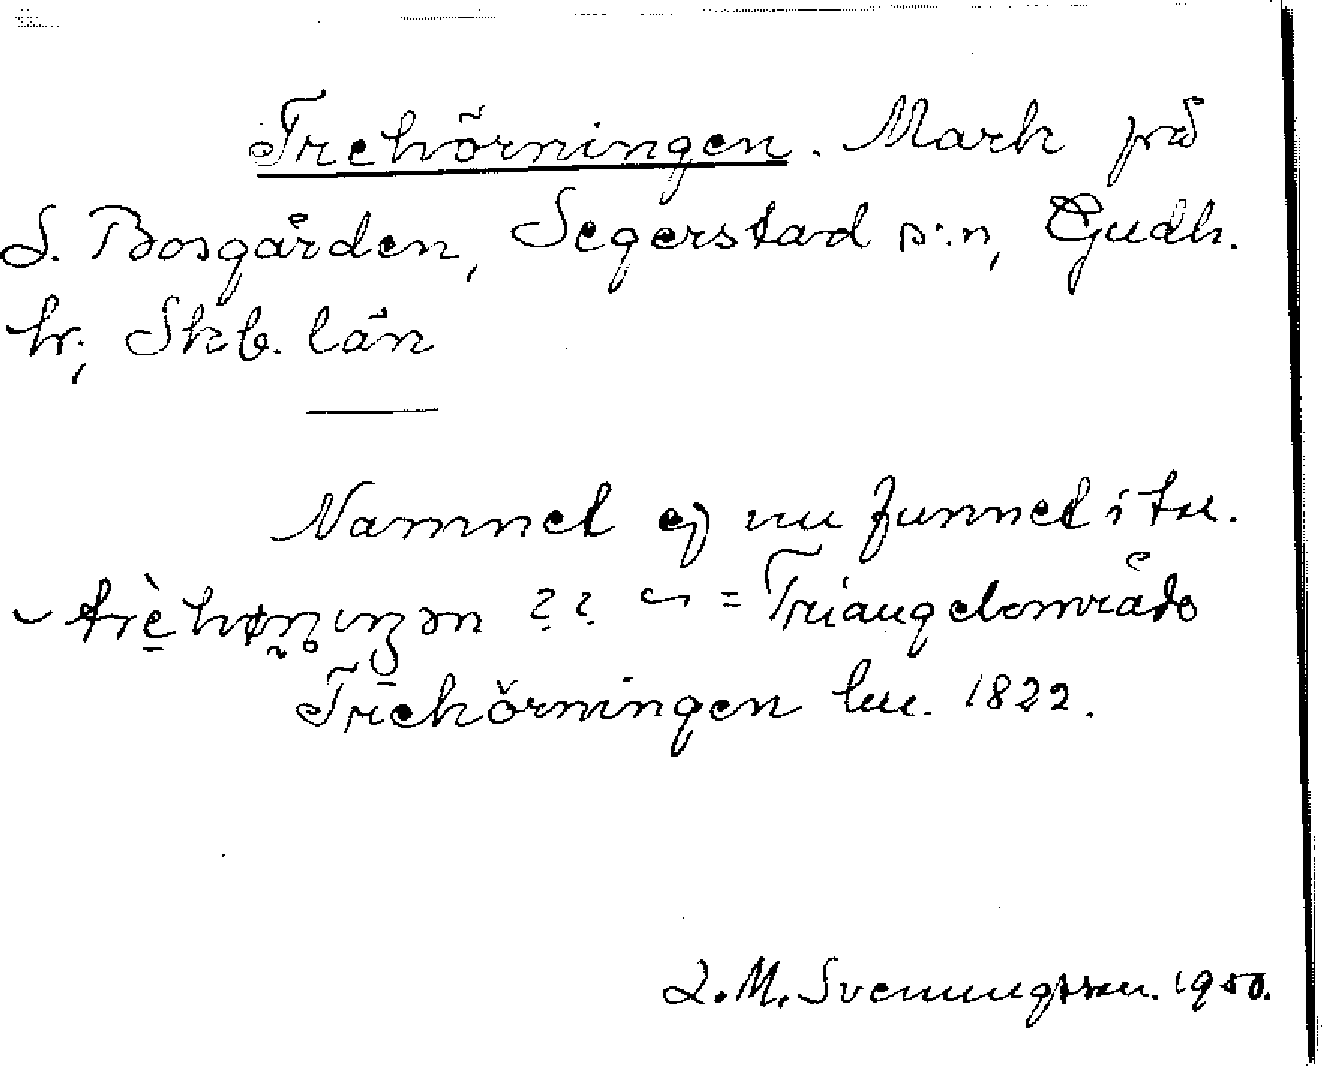 Trehörningen. Mark på
S. Bosgården, Segerstad s:n, Gudh.
hr, Skb. län
Namnet ej nu funnet i tu.
?? = Triangelområde
Trehörningen lm. 1822.
L. M. Svenungsson. 1950.